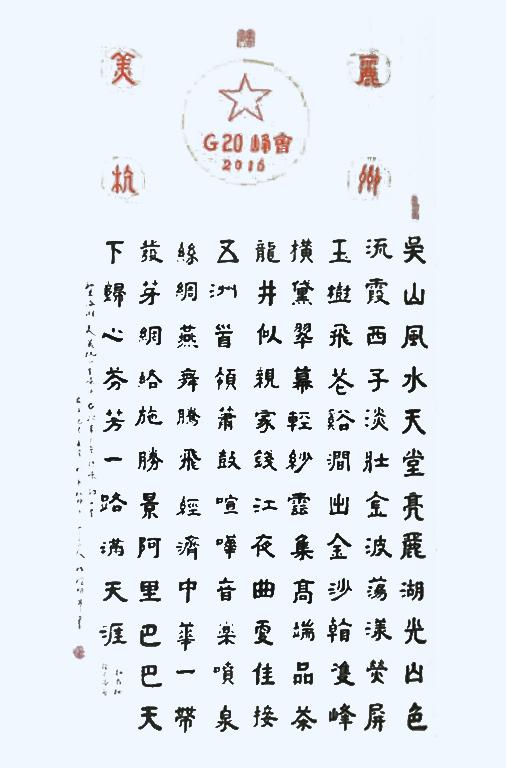 美 麗
G20峰會
2016
杭 州
吳山風水天堂亮麗湖光山色
流霞西子淡壯金波蕩漾熒屏
玉樹飛花谿澗出金沙翰雙峰
橫黛翠幕輕紗雲集高端品茶
龍井似親家綫江夜曲更佳接
五洲首領蕭鼓喧嘩音楽噴泉
絲綢燕舞騰飛經濟中華一帶
發芽網絡施勝景阿里巴巴天
下歸心芬芳一路滿天涯